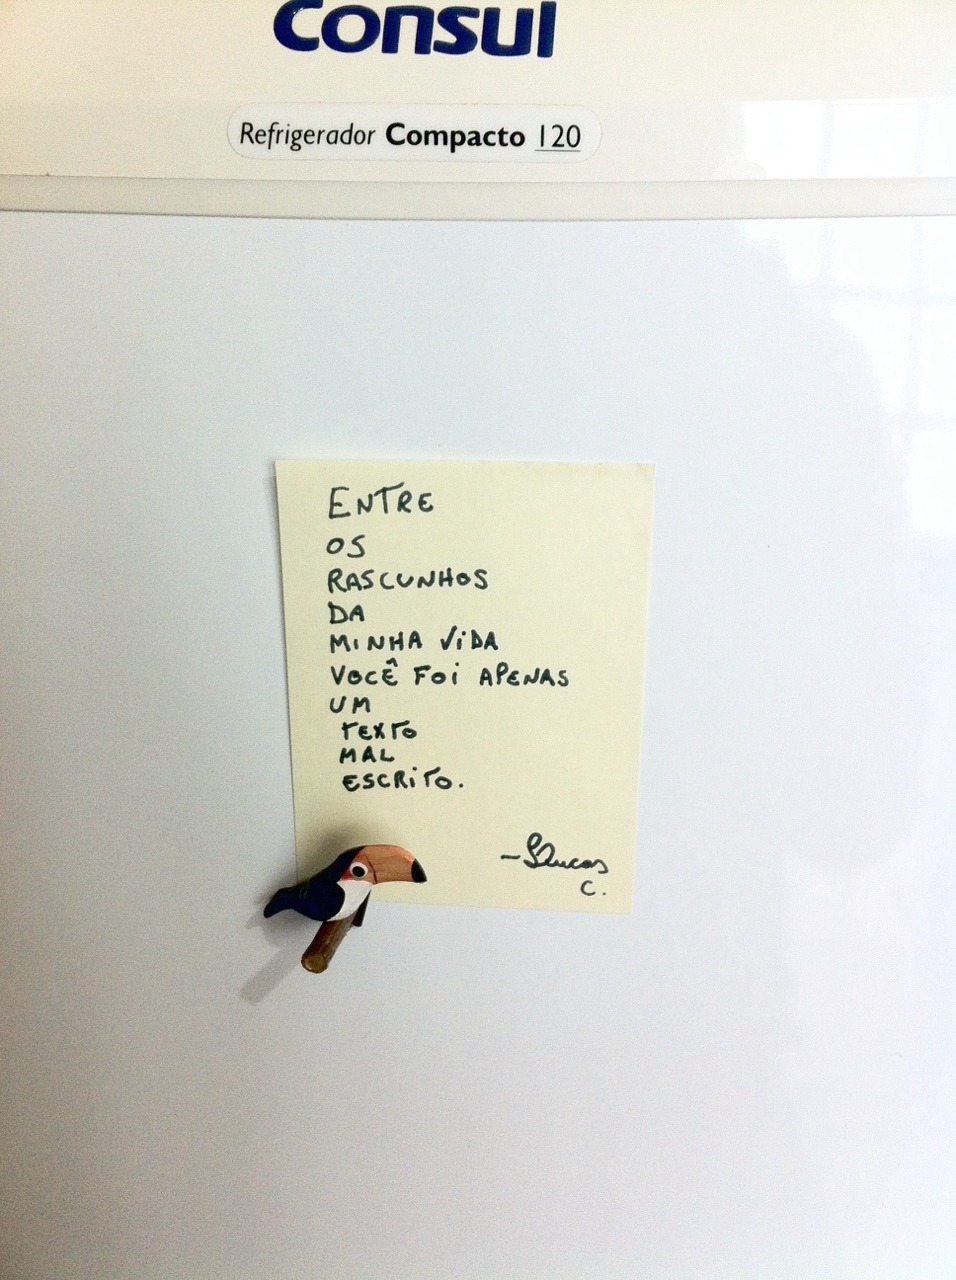 Consul
Refrigerador Compacto 120
ENTRE
OS
RASCUNHOS
DA
MINHA VIDA
VOCÊ FOI APENAS
UM
TEXTO
MAL
ESCRITO.
- Lucas
C.